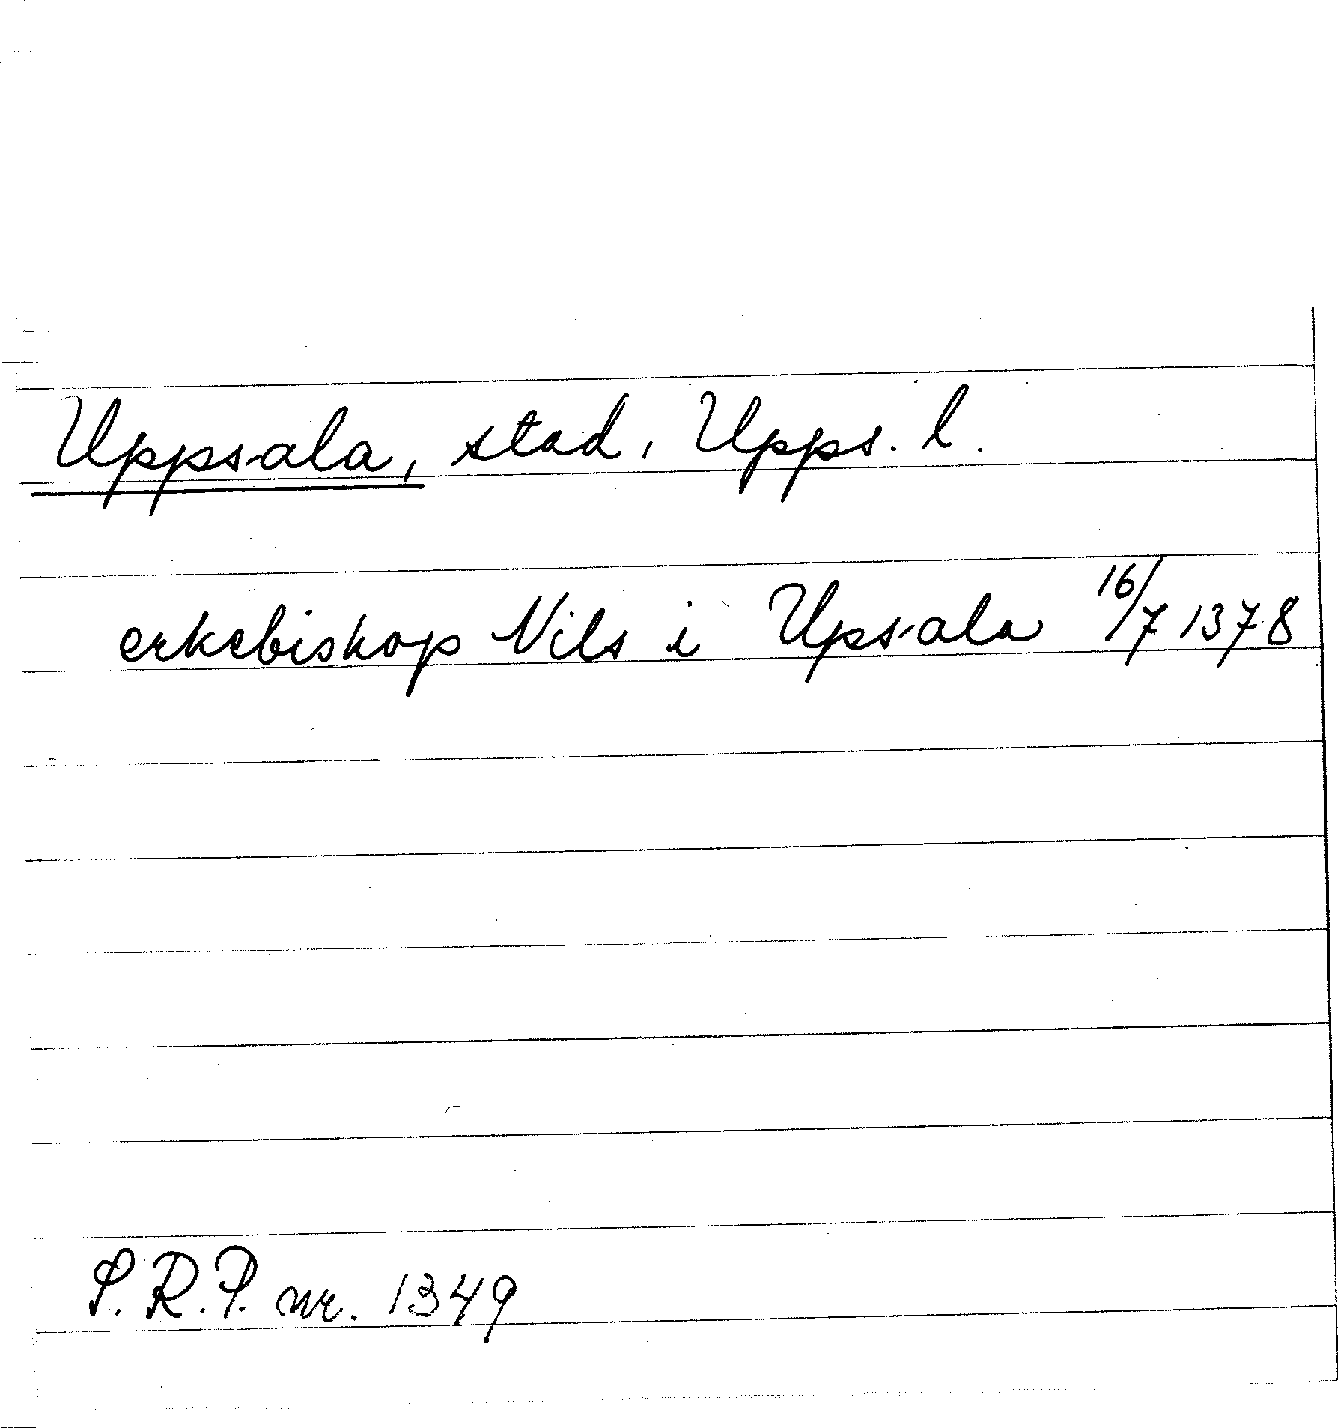 Uppsala, stad, Upps. l.
erkebiskop Nils i Upsala 16/7 1378
S.R.P. nr. 1349